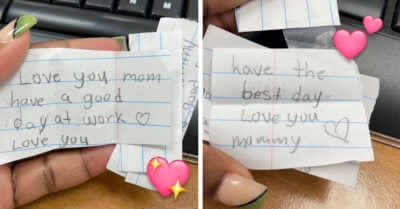 Love you mom
have a good
day at work ♡
Love you
have the
best day
Love you
mommy